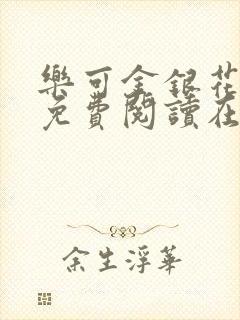 樂可金銀花
免費閱讀在
余生浮華